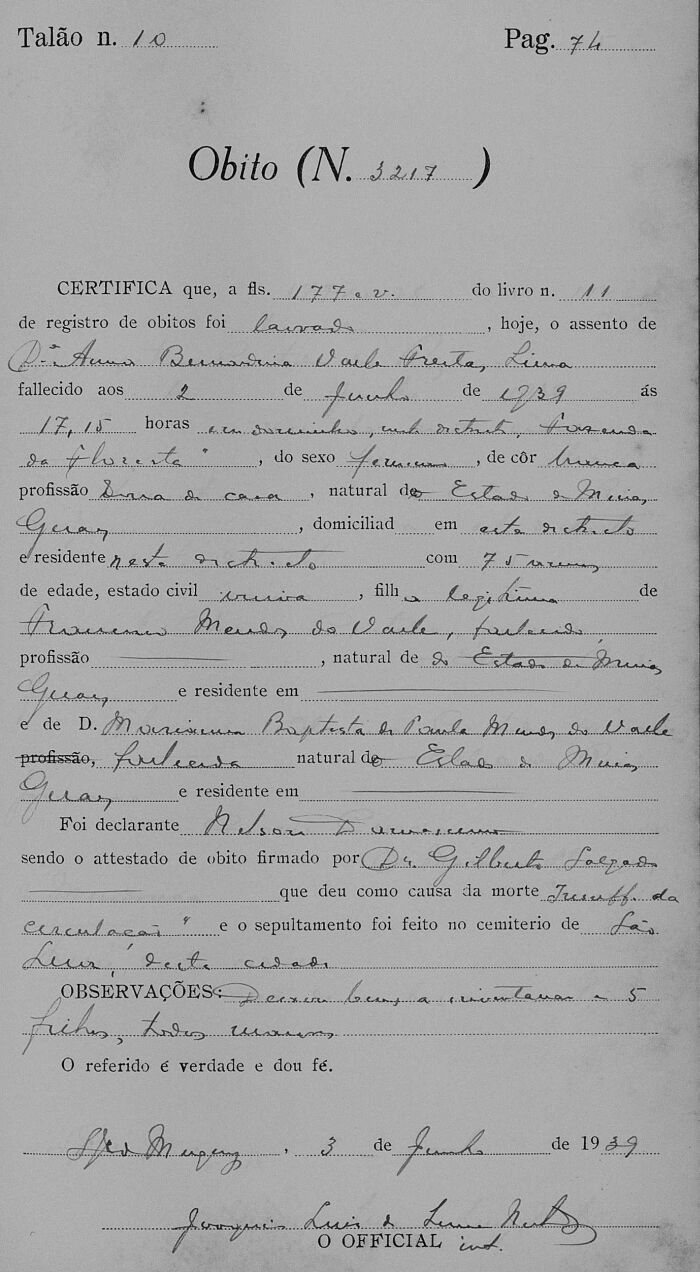 Talão n. 10 Pag. 74
Obito (N. 3217)
CERTIFICA que, a fls. 177 e v. do livro n. 11
de registro de obitos foi lavrado, hoje, o assento de
D.ª Anna Bernardina Valle Freitas Lima
fallecido aos 2 de Junho de 1939 ás
17,15 horas em domicilio, neste districto, Fazenda
da Floresta", do sexo feminino, de côr branca
profissão Dona de casa, natural do Estado de Minas
Geraes, domiciliad em este districto
e residente neste districto com 75 annos
de edade, estado civil viuva, filha legitima de
Francisco Mendes do Valle, fallecido,
profissão natural de do Estado de Minas
Geraes e residente em
e de D. Marianna Baptista de Paula Mendes do Valle
profissão, fallecida natural do Estado de Minas
Geraes e residente em
Foi declarante Nelson Damasceno
sendo o attestado de obito firmado por Dr. Gilberto Salgado
que deu como causa da morte Insuff. da
circulação" e o sepultamento foi feito no cemiterio de São
Luiz, desta cidade
OBSERVAÇÕES: Deixou bens a inventariar e 5
filhos, todos maiores
O referido é verdade e dou fé.
3 de Junho de 1939
Joaquim Luis de Lima
O OFFICIAL int.